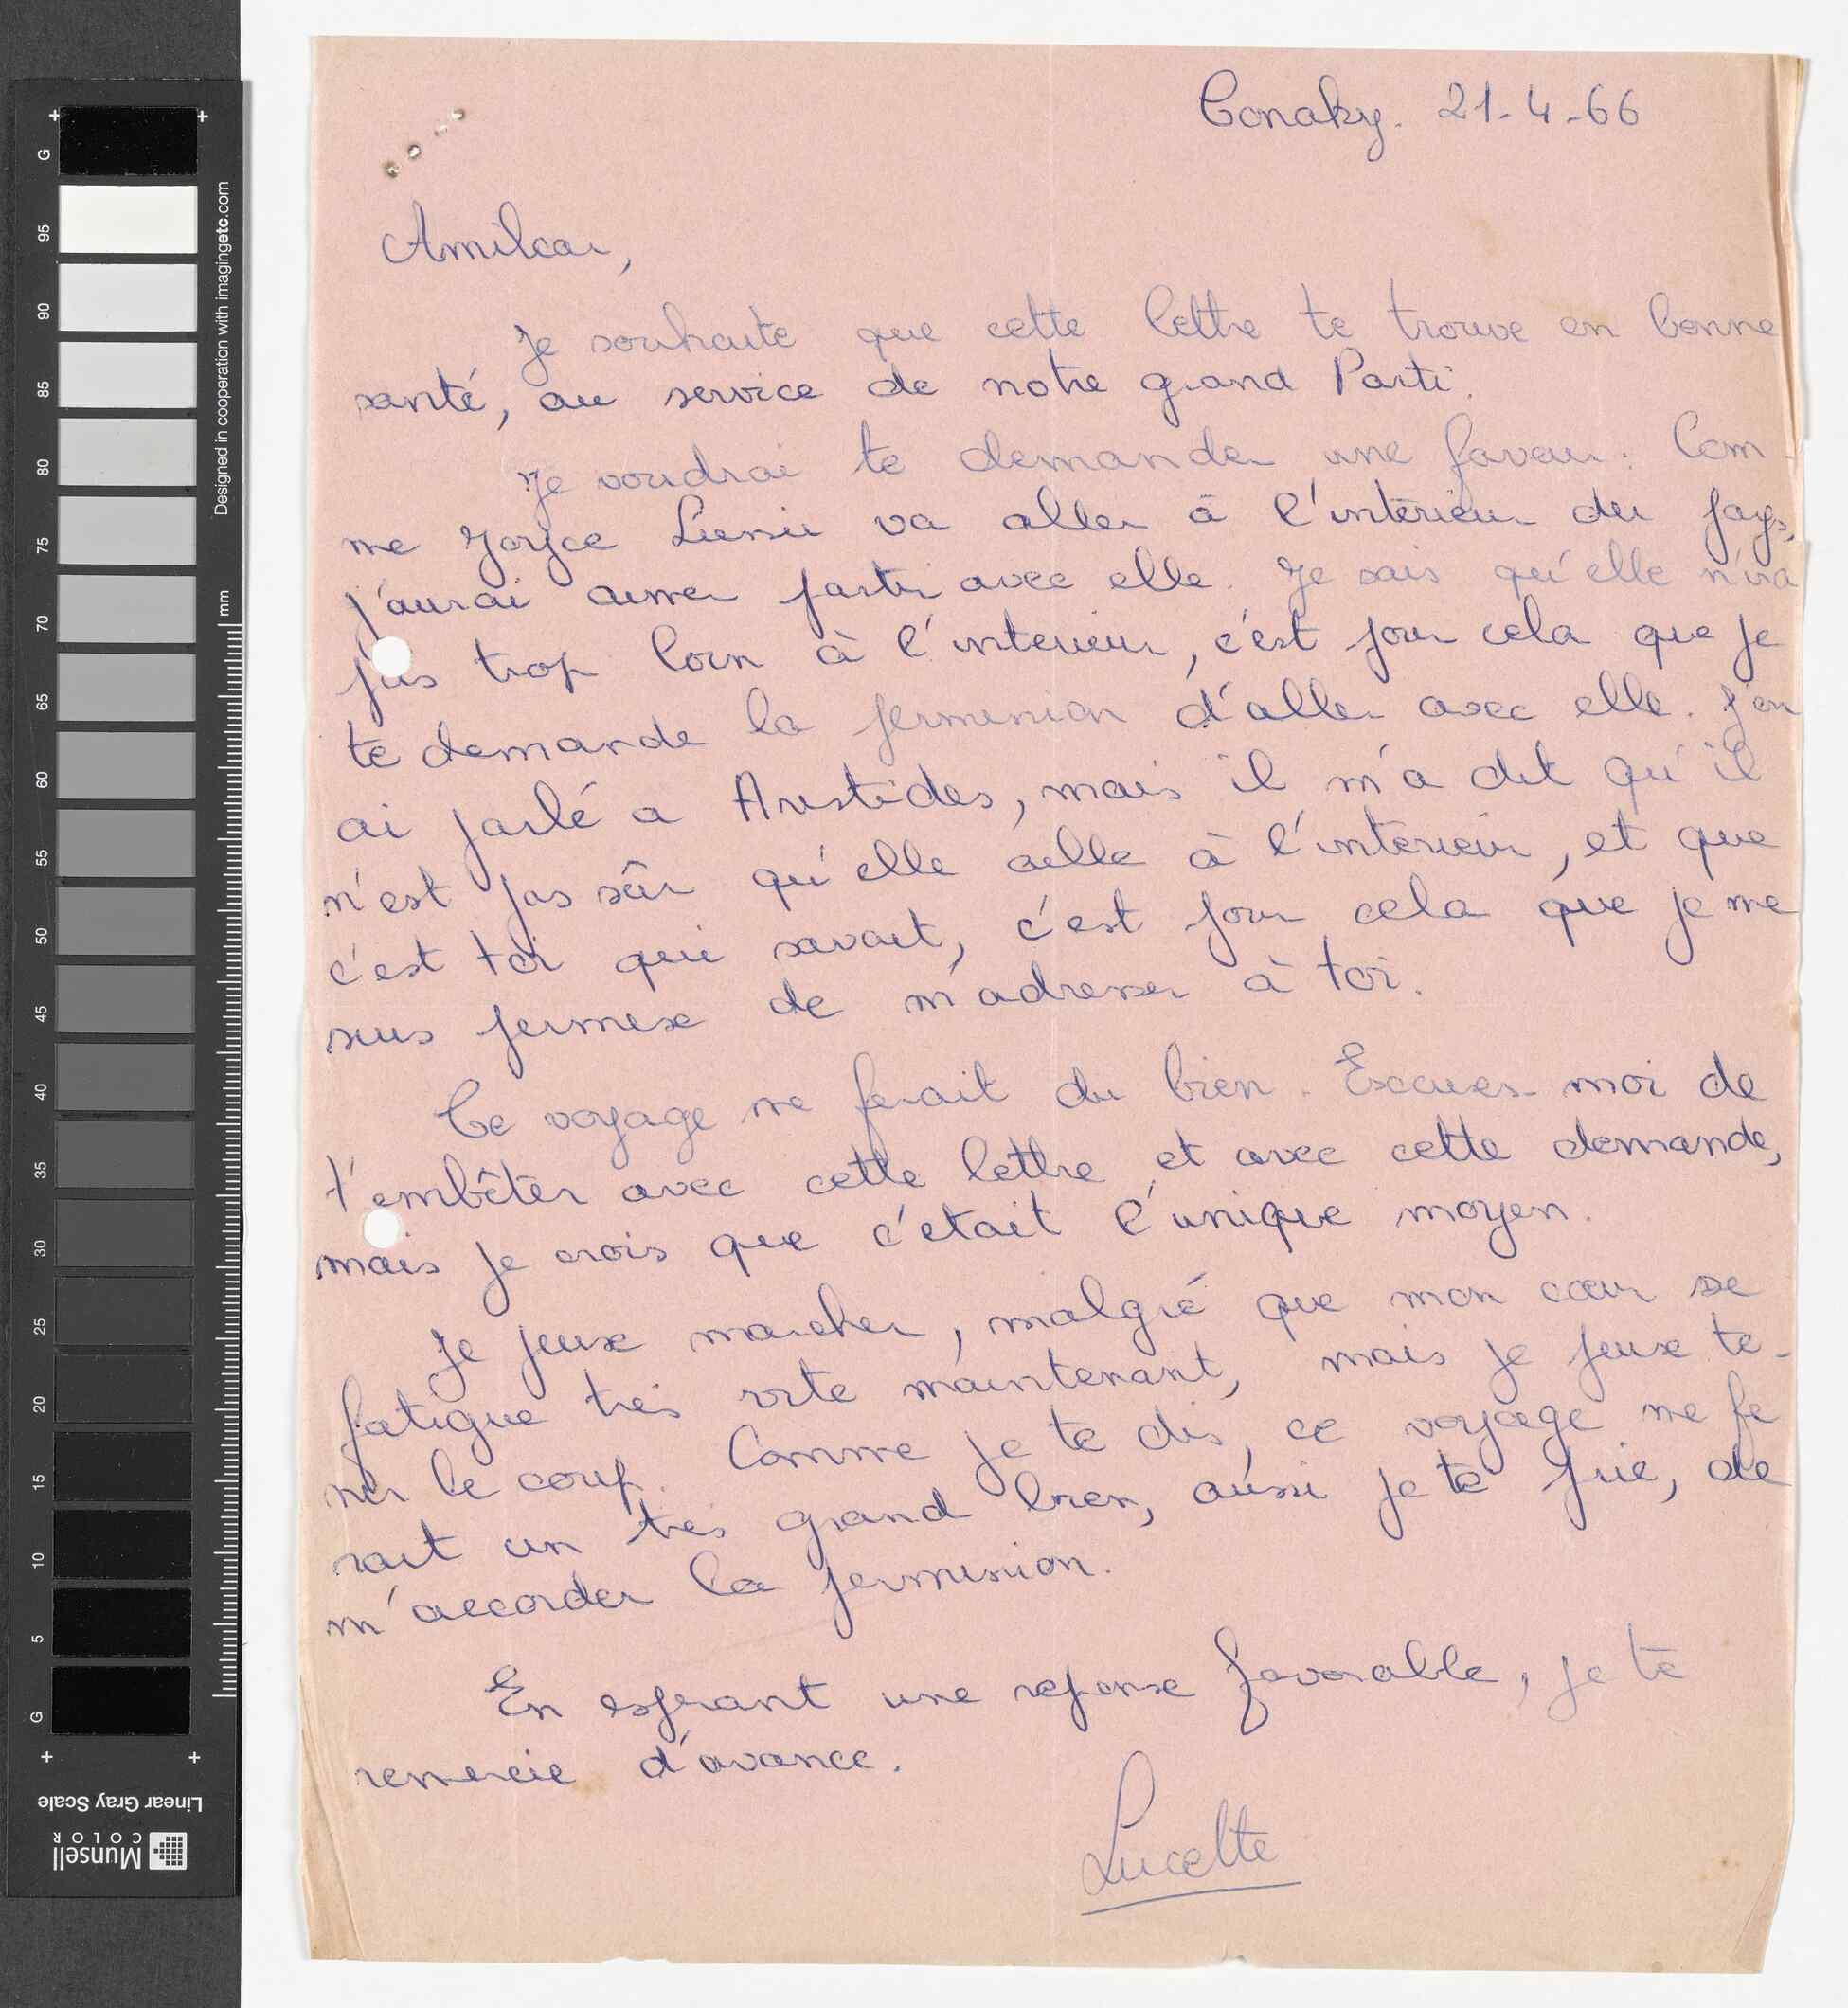 Conaky. 21-4-66
Amilcar,
Je souhaite que cette lettre te trouve en bonne
santé, au service de notre grand Parti.
Je voudrai te demander une faveur: Com-
me Joyce Lussu va aller à l'intérieur du pays,
j'aurai aimer partir avec elle. Je sais qu'elle n'ira
pas trop loin à l'interieur, c'est pour cela que je
te demande la permission d'aller avec elle. J'en
ai parlé a Aristides, mais il m'a dit qu'il
n'est pas sûr qu'elle aille à l'interieur, et que
c'est toi qui savait, c'est pour cela que je me
suis permise de m'adresser à toi.
Ce voyage me ferait du bien. Excuses-moi de
t'embêter avec cette lettre et avec cette demande,
mais je crois que c'etait l'unique moyen.
Je peux marcher, malgré que mon cœur se
fatigue très vite maintenant, mais je peux te-
nir le coup. Comme je te dis, ce voyage me fe
rait un très grand bien, aussi je te prie, de
m'accorder la permission.
En esperant une reponse favorable, je te
remercie d'avance.
Lucette
G
95
90
85
80
75
70
65
60
55
50
45
40
35
30
25
20
15
10
5
G
mm
Designed in cooperation with imagingetc.com
Linear Gray Scale
Munsell
COLOR